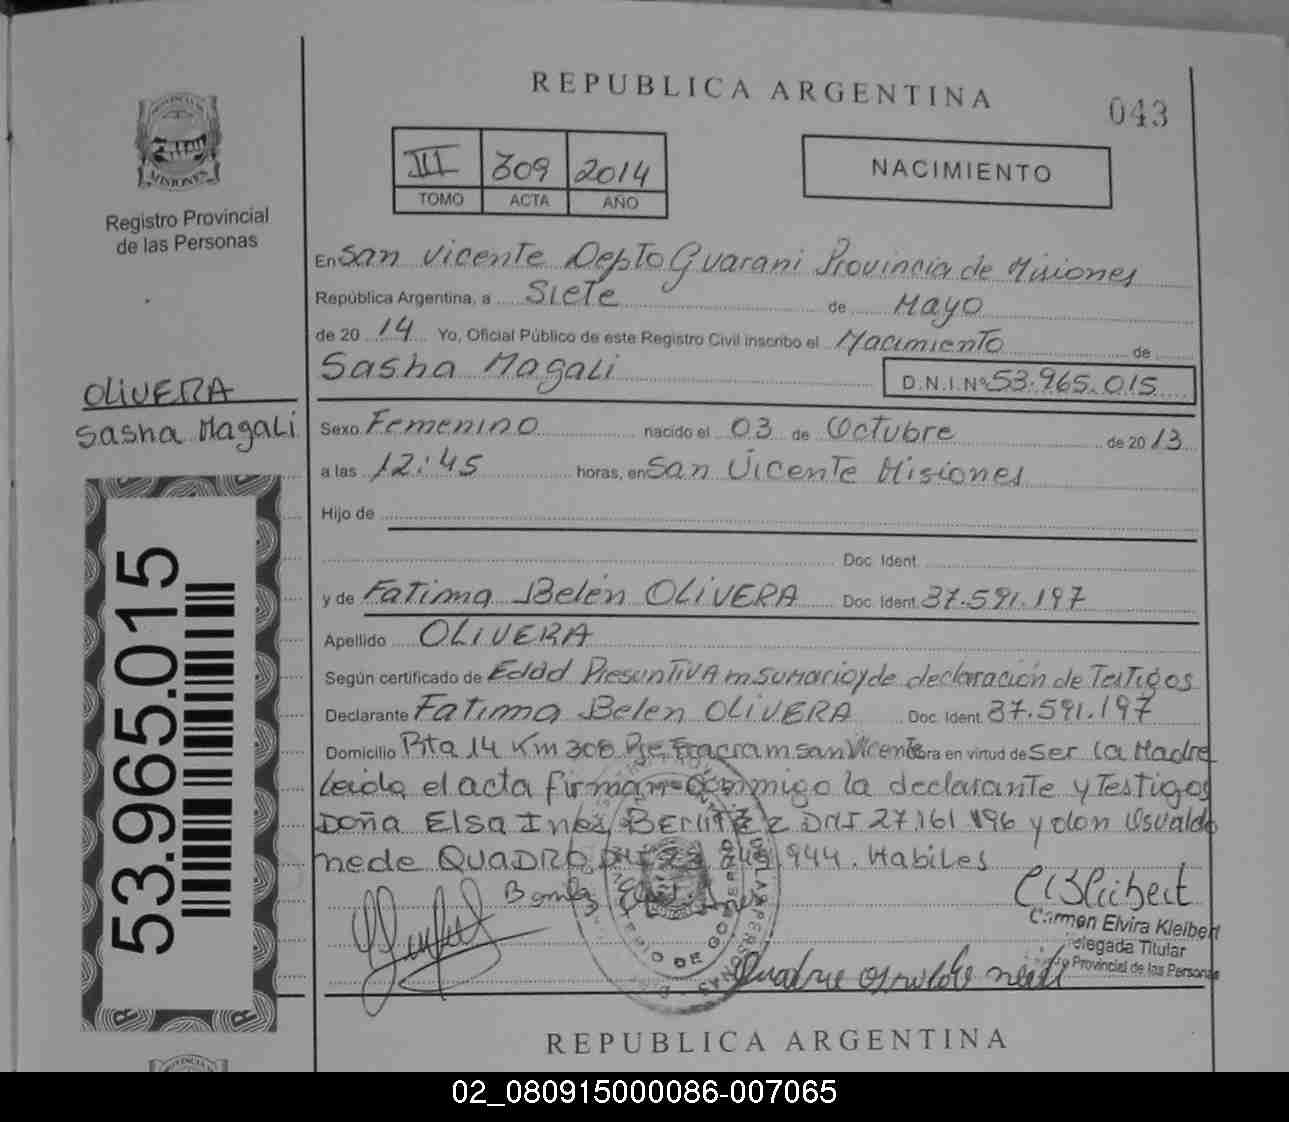 REPUBLICA ARGENTINA
043
III 309 2014
TOMO ACTA AÑO
NACIMIENTO
PROVINCIA DE
MISIONES
Registro Provincial
de las Personas
En San Vicente Depto Guarani Provincia de Misiones
República Argentina, a Siete de Mayo
de 20 14 Yo, Oficial Público de este Registro Civil inscribo el Nacimiento de
Sasha Magali
D.N.I.Nº 53.965.015
OLIVERA
Sasha Magali
Sexo Femenino nacido el 03 de Octubre de 20 13
a las 12:45 horas, en San Vicente Misiones
Hijo de
Doc. Ident.
y de Fatima Belén OLIVERA Doc. Ident. 37.591.197
Apellido OLIVERA
Según certificado de Edad Presuntiva m.sumario y de declaración de Testigos
Declarante Fatima Belen OLIVERA Doc. Ident. 37.591.197
Domicilio Rta 14 Km 308 San Vicente obra en virtud de Ser la Madre
Leida el acta firman conmigo la declarante y Testigos
Doña Elsa Inés DNI 27.161.196 y don Osvaldo
nede QUADRO 944. Habiles
53.965.015
Carmen Elvira Kleibert
Delegada Titular
Registro Provincial de las Personas
REPUBLICA ARGENTINA
02_080915000086-007065